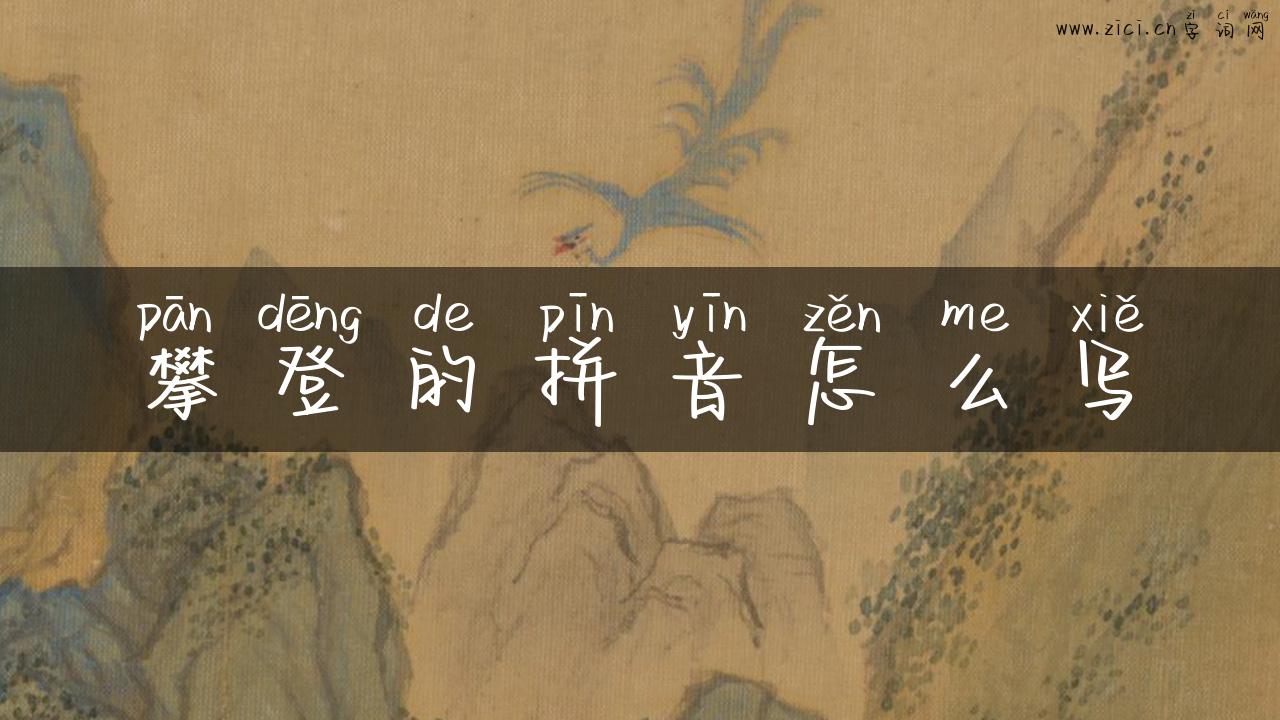 zì cí wǎng
www.zici.cn字词网
pān dēng de pīn yīn zěn me xiě
攀登的拼音怎么写